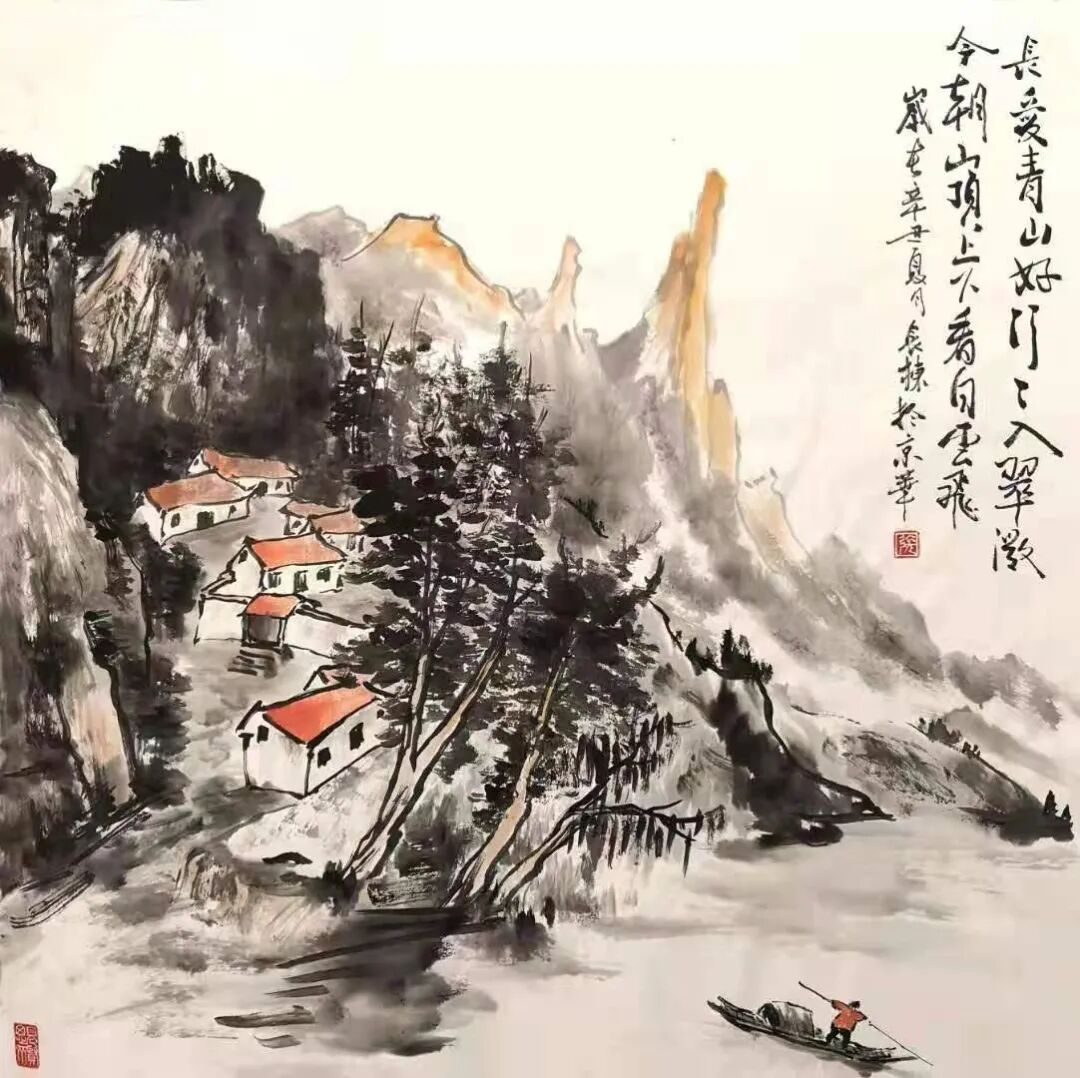 長愛青山好行〻入翠微
今朝山頂上下看白雲飛
歲在辛丑夏月於京華
見賢思齊